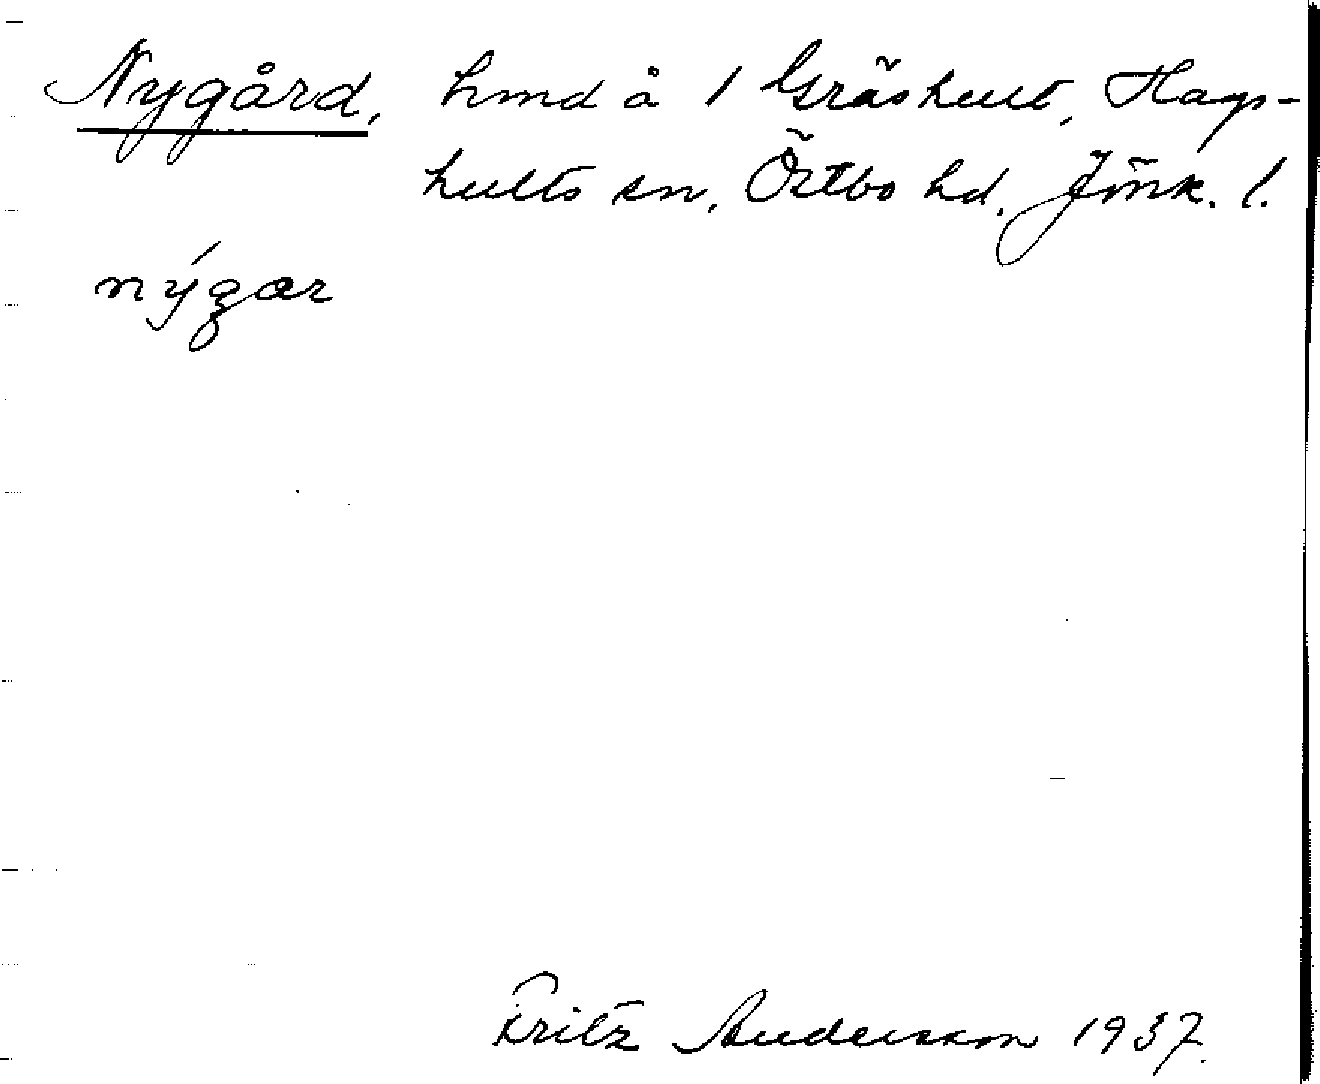 Nygård, hmd å 1 Gräshult, Hags-
hults sn, Östbo hd, Jönk. l.
nýgar
Fritz Andersson 1937.